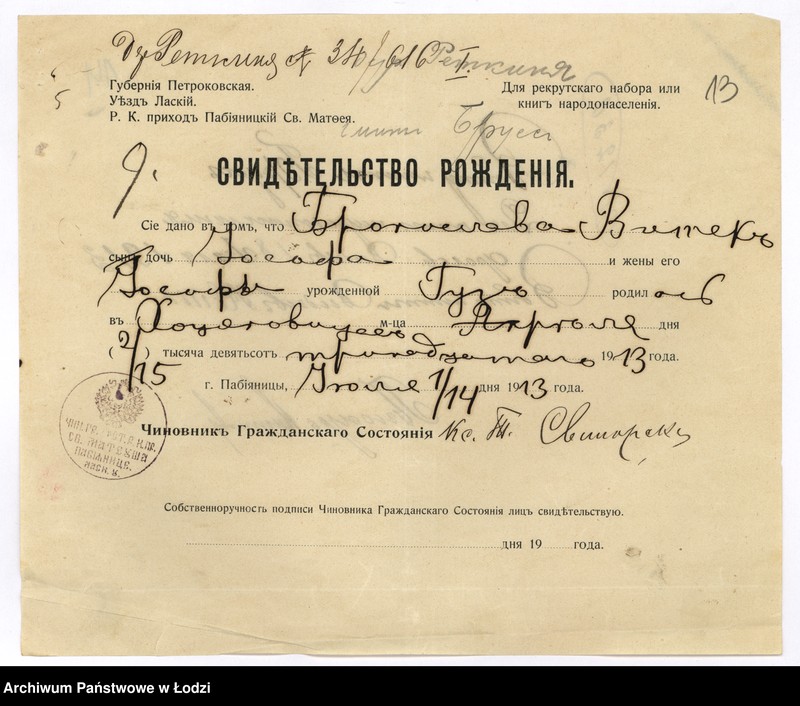 Реткиня № 34/616 Реткиня I.
Губернія Петроковская.
Уѣздъ Ласкій.
Р. К. приходъ Пабіяницкій Св. Матѳея.
Для рекрутскаго набора или
книгъ народонаселенія.
13
Брусъ
9.
СВИДѢТЕЛЬСТВО РОЖДЕНІЯ.
Сіе дано въ томъ, что Бронислава Витекъ
сынъ дочь Іосифа и жены его
Іосефы урожденной Гузъ родилась
въ м-ца Апрѣля дня
(2/15) тысяча девятьсот тринадцатаго 1913 года.
г. Пабіяницы, Іюля 1/14 дня 1913 года.
Чиновникъ Гражданскаго Состоянія Кс. Т. Свинарски
Собственноручность подписи Чиновника Гражданскаго Состоянія лицъ свидѣтельствую.
дня 19 года.
Archiwum Państwowe w Łodzi